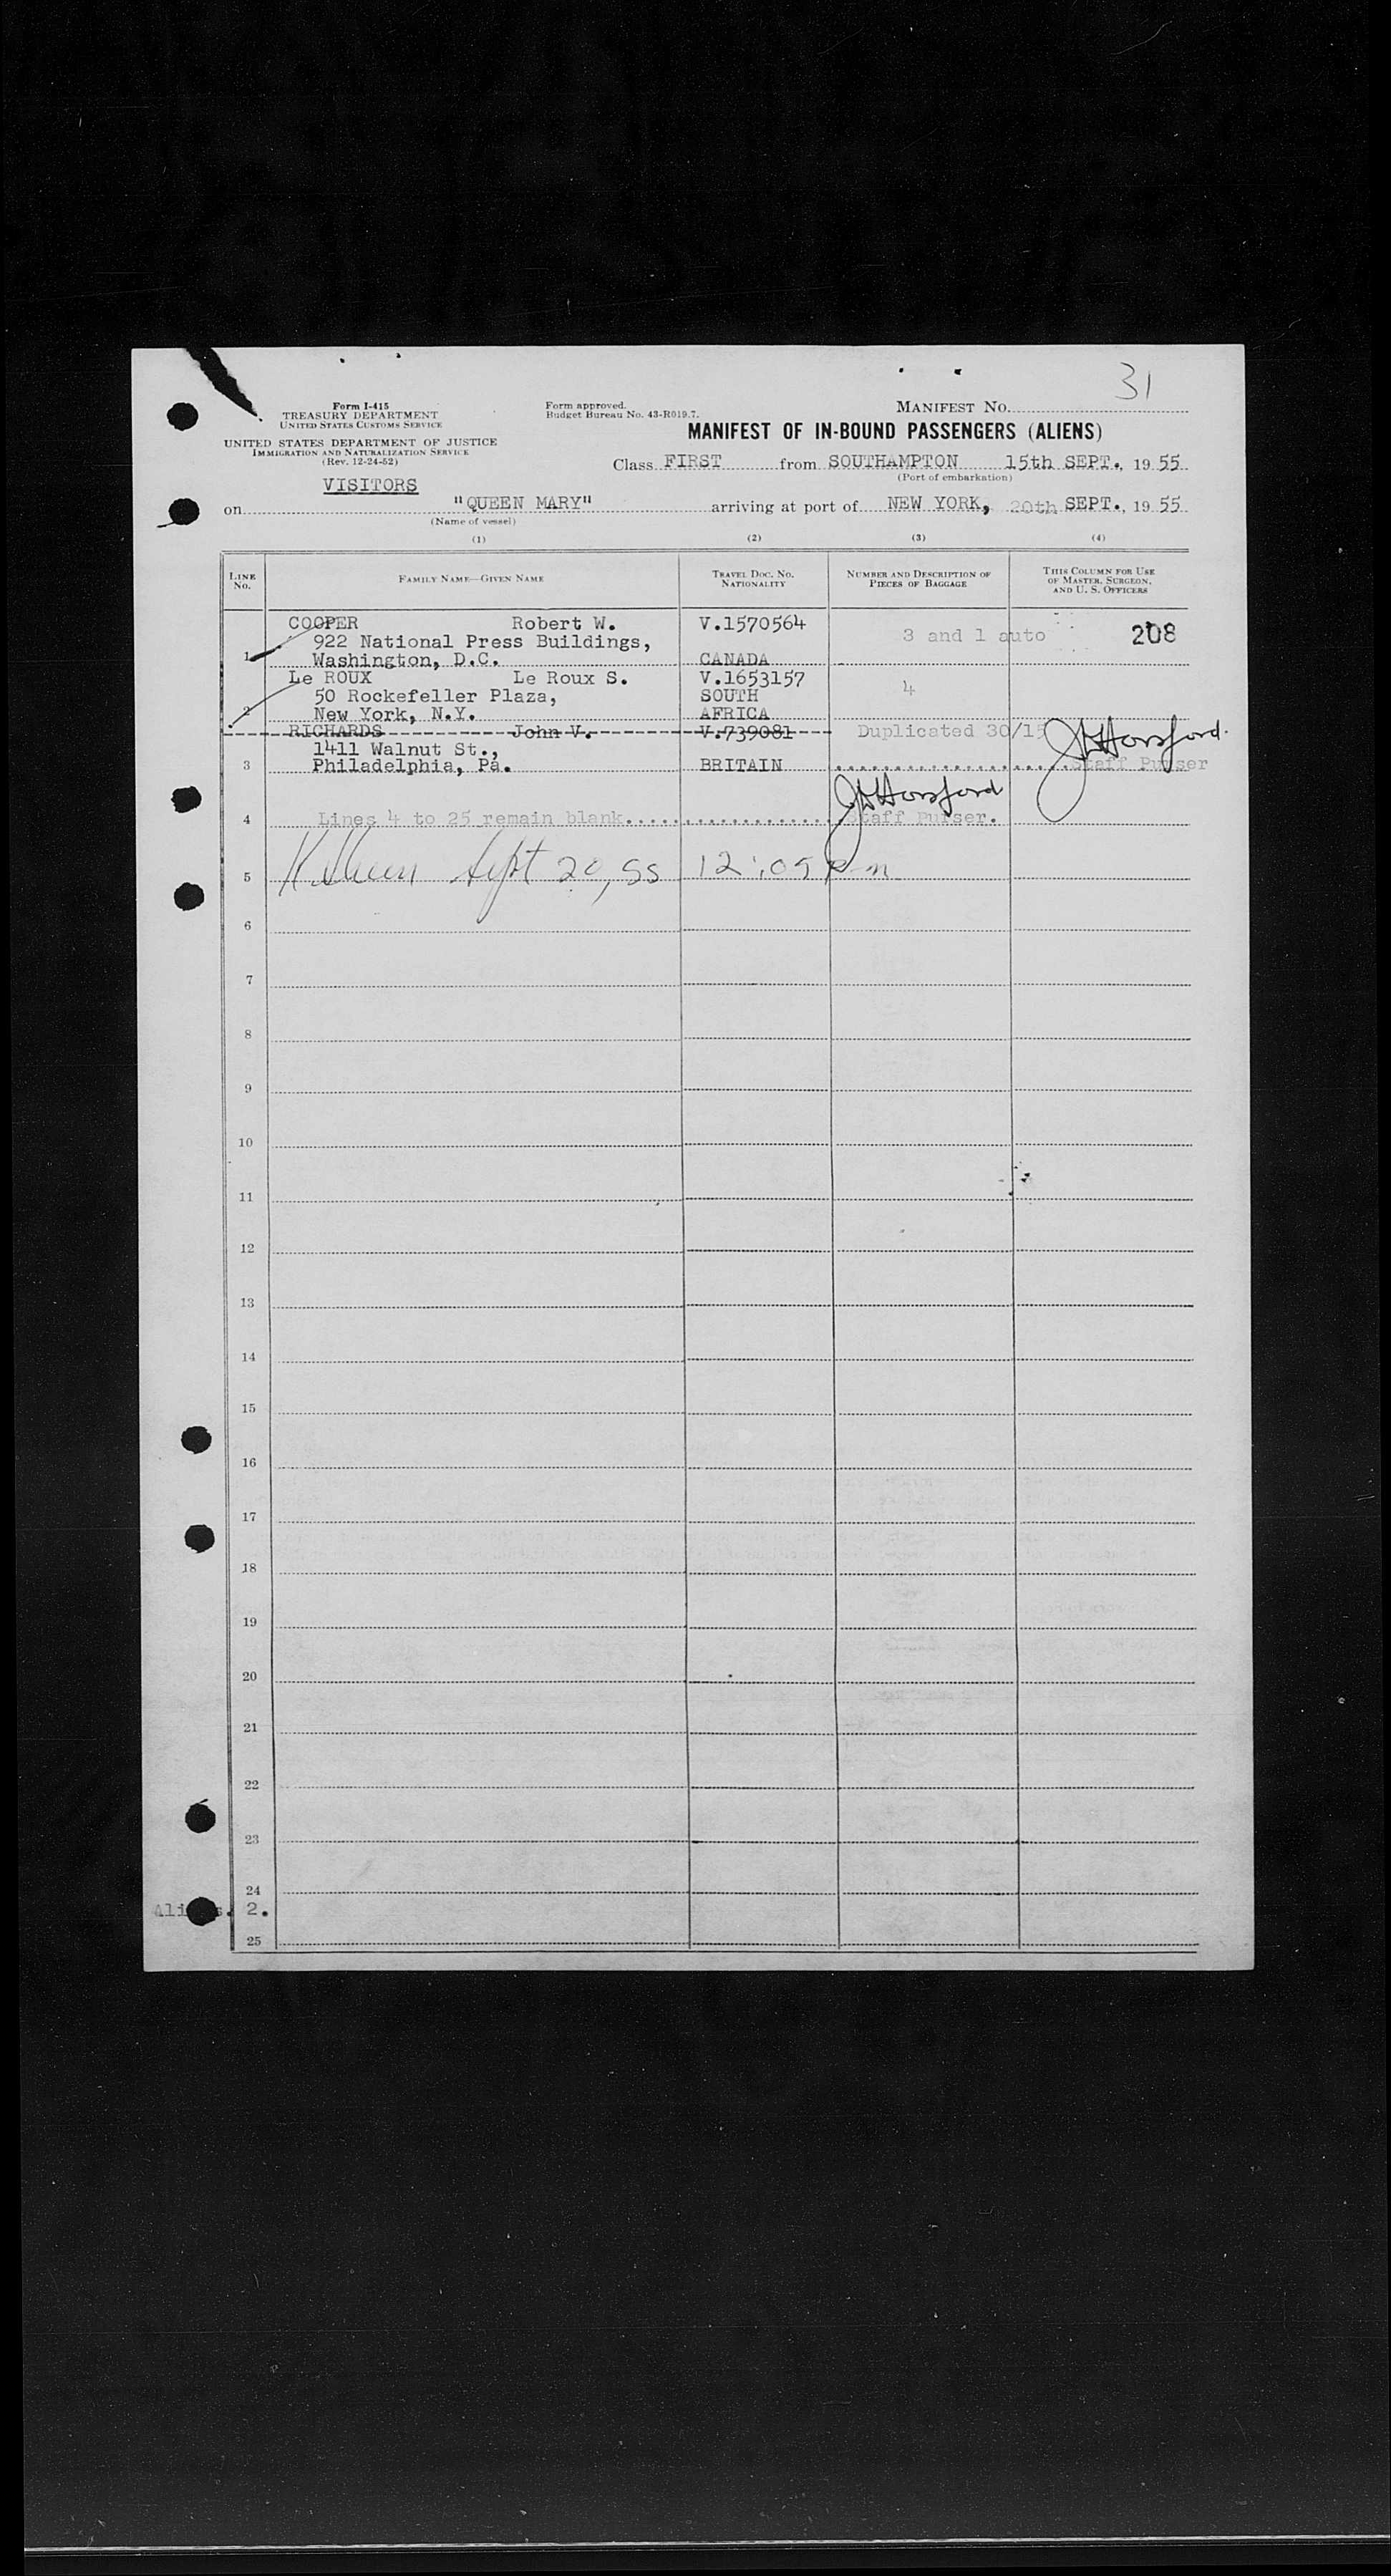 31
Form I-415
TREASURY DEPARTMENT
UNITED STATES CUSTOMS SERVICE
UNITED STATES DEPARTMENT OF JUSTICE
IMMIGRATION AND NATURALIZATION SERVICE
(Rev. 12-24-52)
VISITORS
Form approved.
Budget Bureau No. 43-R019.7.
MANIFEST NO.
MANIFEST OF IN-BOUND PASSENGERS (ALIENS)
Class FIRST from SOUTHAMPTON 15th SEPT., 19 55
(Port of embarkation)
on "QUEEN MARY" arriving at port of NEW YORK, 20th SEPT., 19 55
(Name of vessel)
(1) (2) (3) (4)
LINE NO. FAMILY NAME—GIVEN NAME TRAVEL DOC. NO. NATIONALITY NUMBER AND DESCRIPTION OF PIECES OF BAGGAGE THIS COLUMN FOR USE OF MASTER, SURGEON, AND U. S. OFFICERS
COOPER Robert W. V.1570564 3 and 1 auto 208
922 National Press Buildings,
1 Washington, D.C. CANADA
Le ROUX Le Roux S. V.1653157 4
50 Rockefeller Plaza, SOUTH
2 New York, N.Y. AFRICA
RICHARDS John V. V.739081 Duplicated 30/15 Horsford.
1411 Walnut St.,
3 Philadelphia, Pa. BRITAIN Staff Purser
Horsford
4 Lines 4 to 25 remain blank Staff Purser.
5 Sept 20, 55 12:05 Pm
6
7
8
9
10
11
12
13
14
15
16
17
18
19
20
21
22
23
24
2.
25